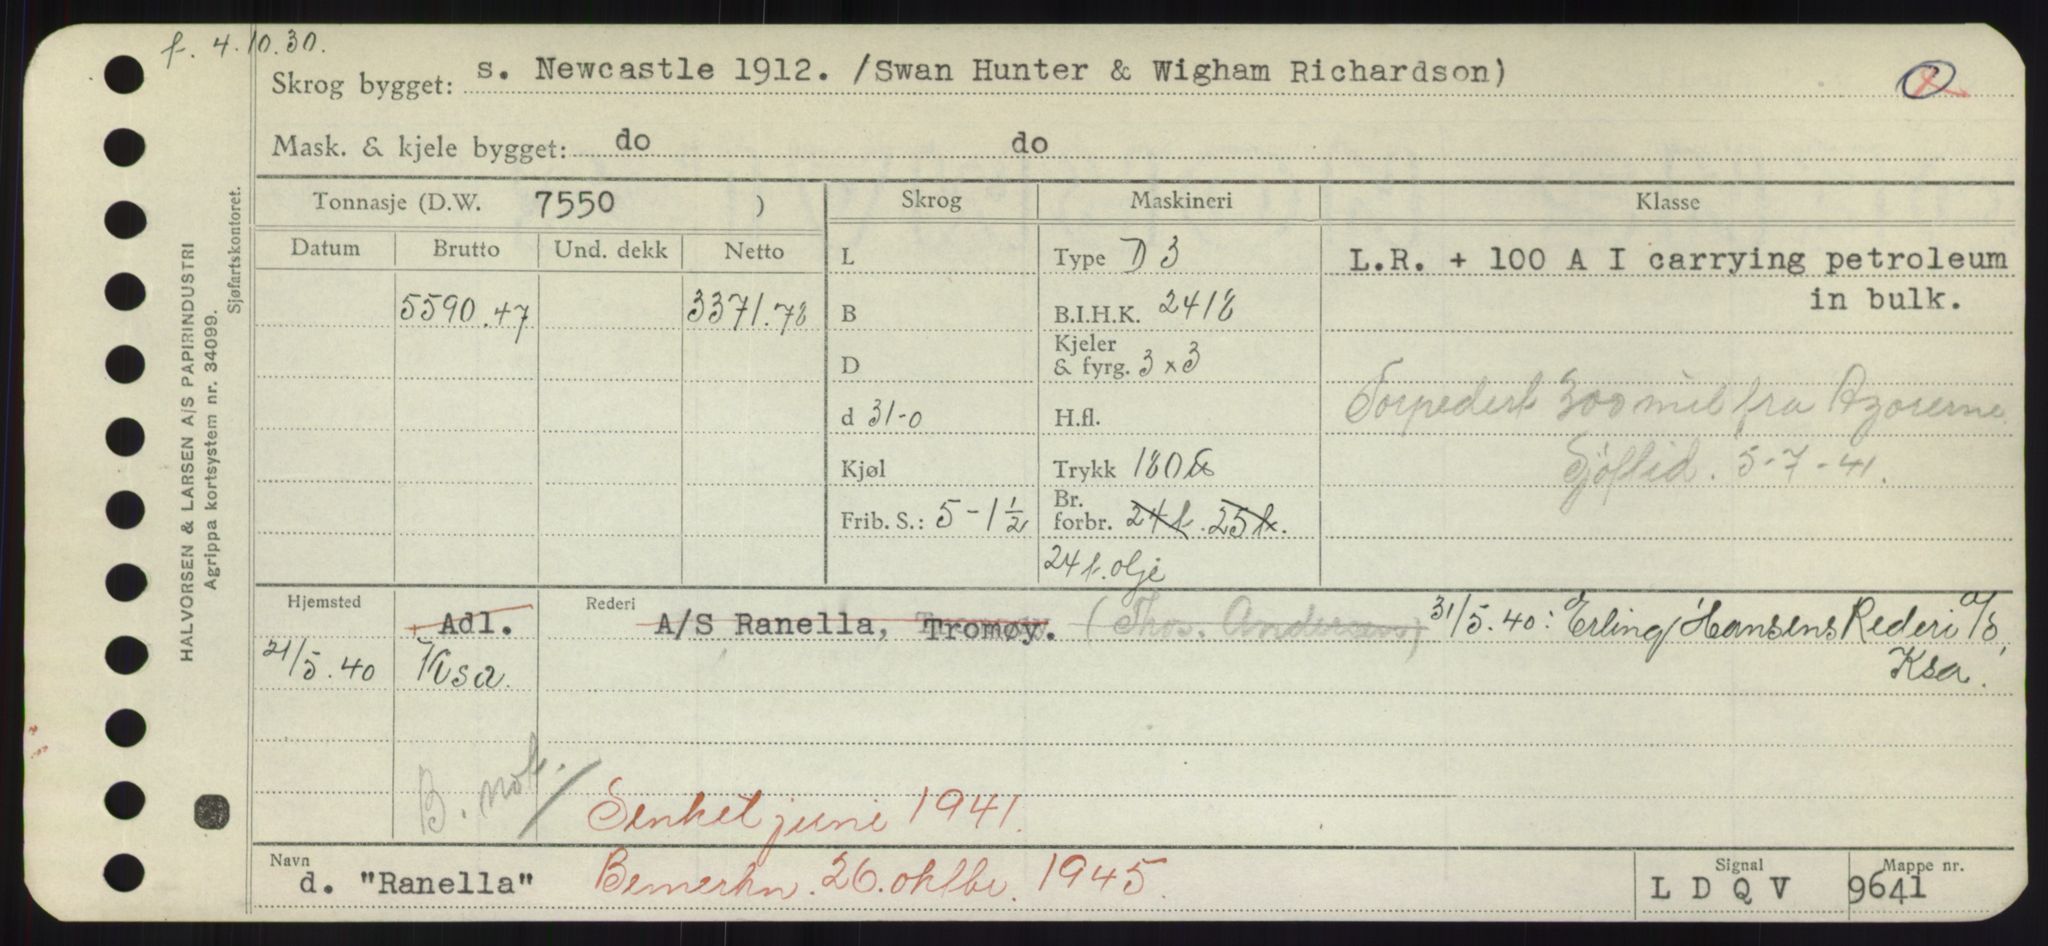 f. 4.10.30.
Skrog bygget: s. Newcastle 1912. /Swan Hunter & Wigham Richardson)
Mask. & kjele bygget: do do
Tonnasje (D.W. 7550 ) Skrog Maskineri Klasse
Datum Brutto Und. dekk Netto
L Type D 3 L.R. + 100 A I carrying petroleum
in bulk.
5590.47 3371.78 B B.I.H.K. 2418
D Kjeler
& fyrg. 3 x 3
Torpedert 300 mil fra Azorerne
d 31-0 H.fl.
Sjøftid. 5-7-41.
Kjøl Trykk 180
Frib. S.: 5-1 1/2 Br.
forbr. 24 t. 25 t.
24 t. olje
Hjemsted Adl. Rederi A/S Ranella, Tromøy. (Thos. Andersen) 31/5.40: Erling Hansens Rederi A/S,
Ksa.
21/5.40 Ksa.
B. not.
Senket juni 1941.
Navn d. "Ranella" Bemerkn. 26. oktbr. 1945.
Signal L D Q V
Mappe nr. 9641
HALVORSEN & LARSEN A/S PAPIRINDUSTRI
Agrippa kortsystem nr. 34099.
Sjøfartskontoret.